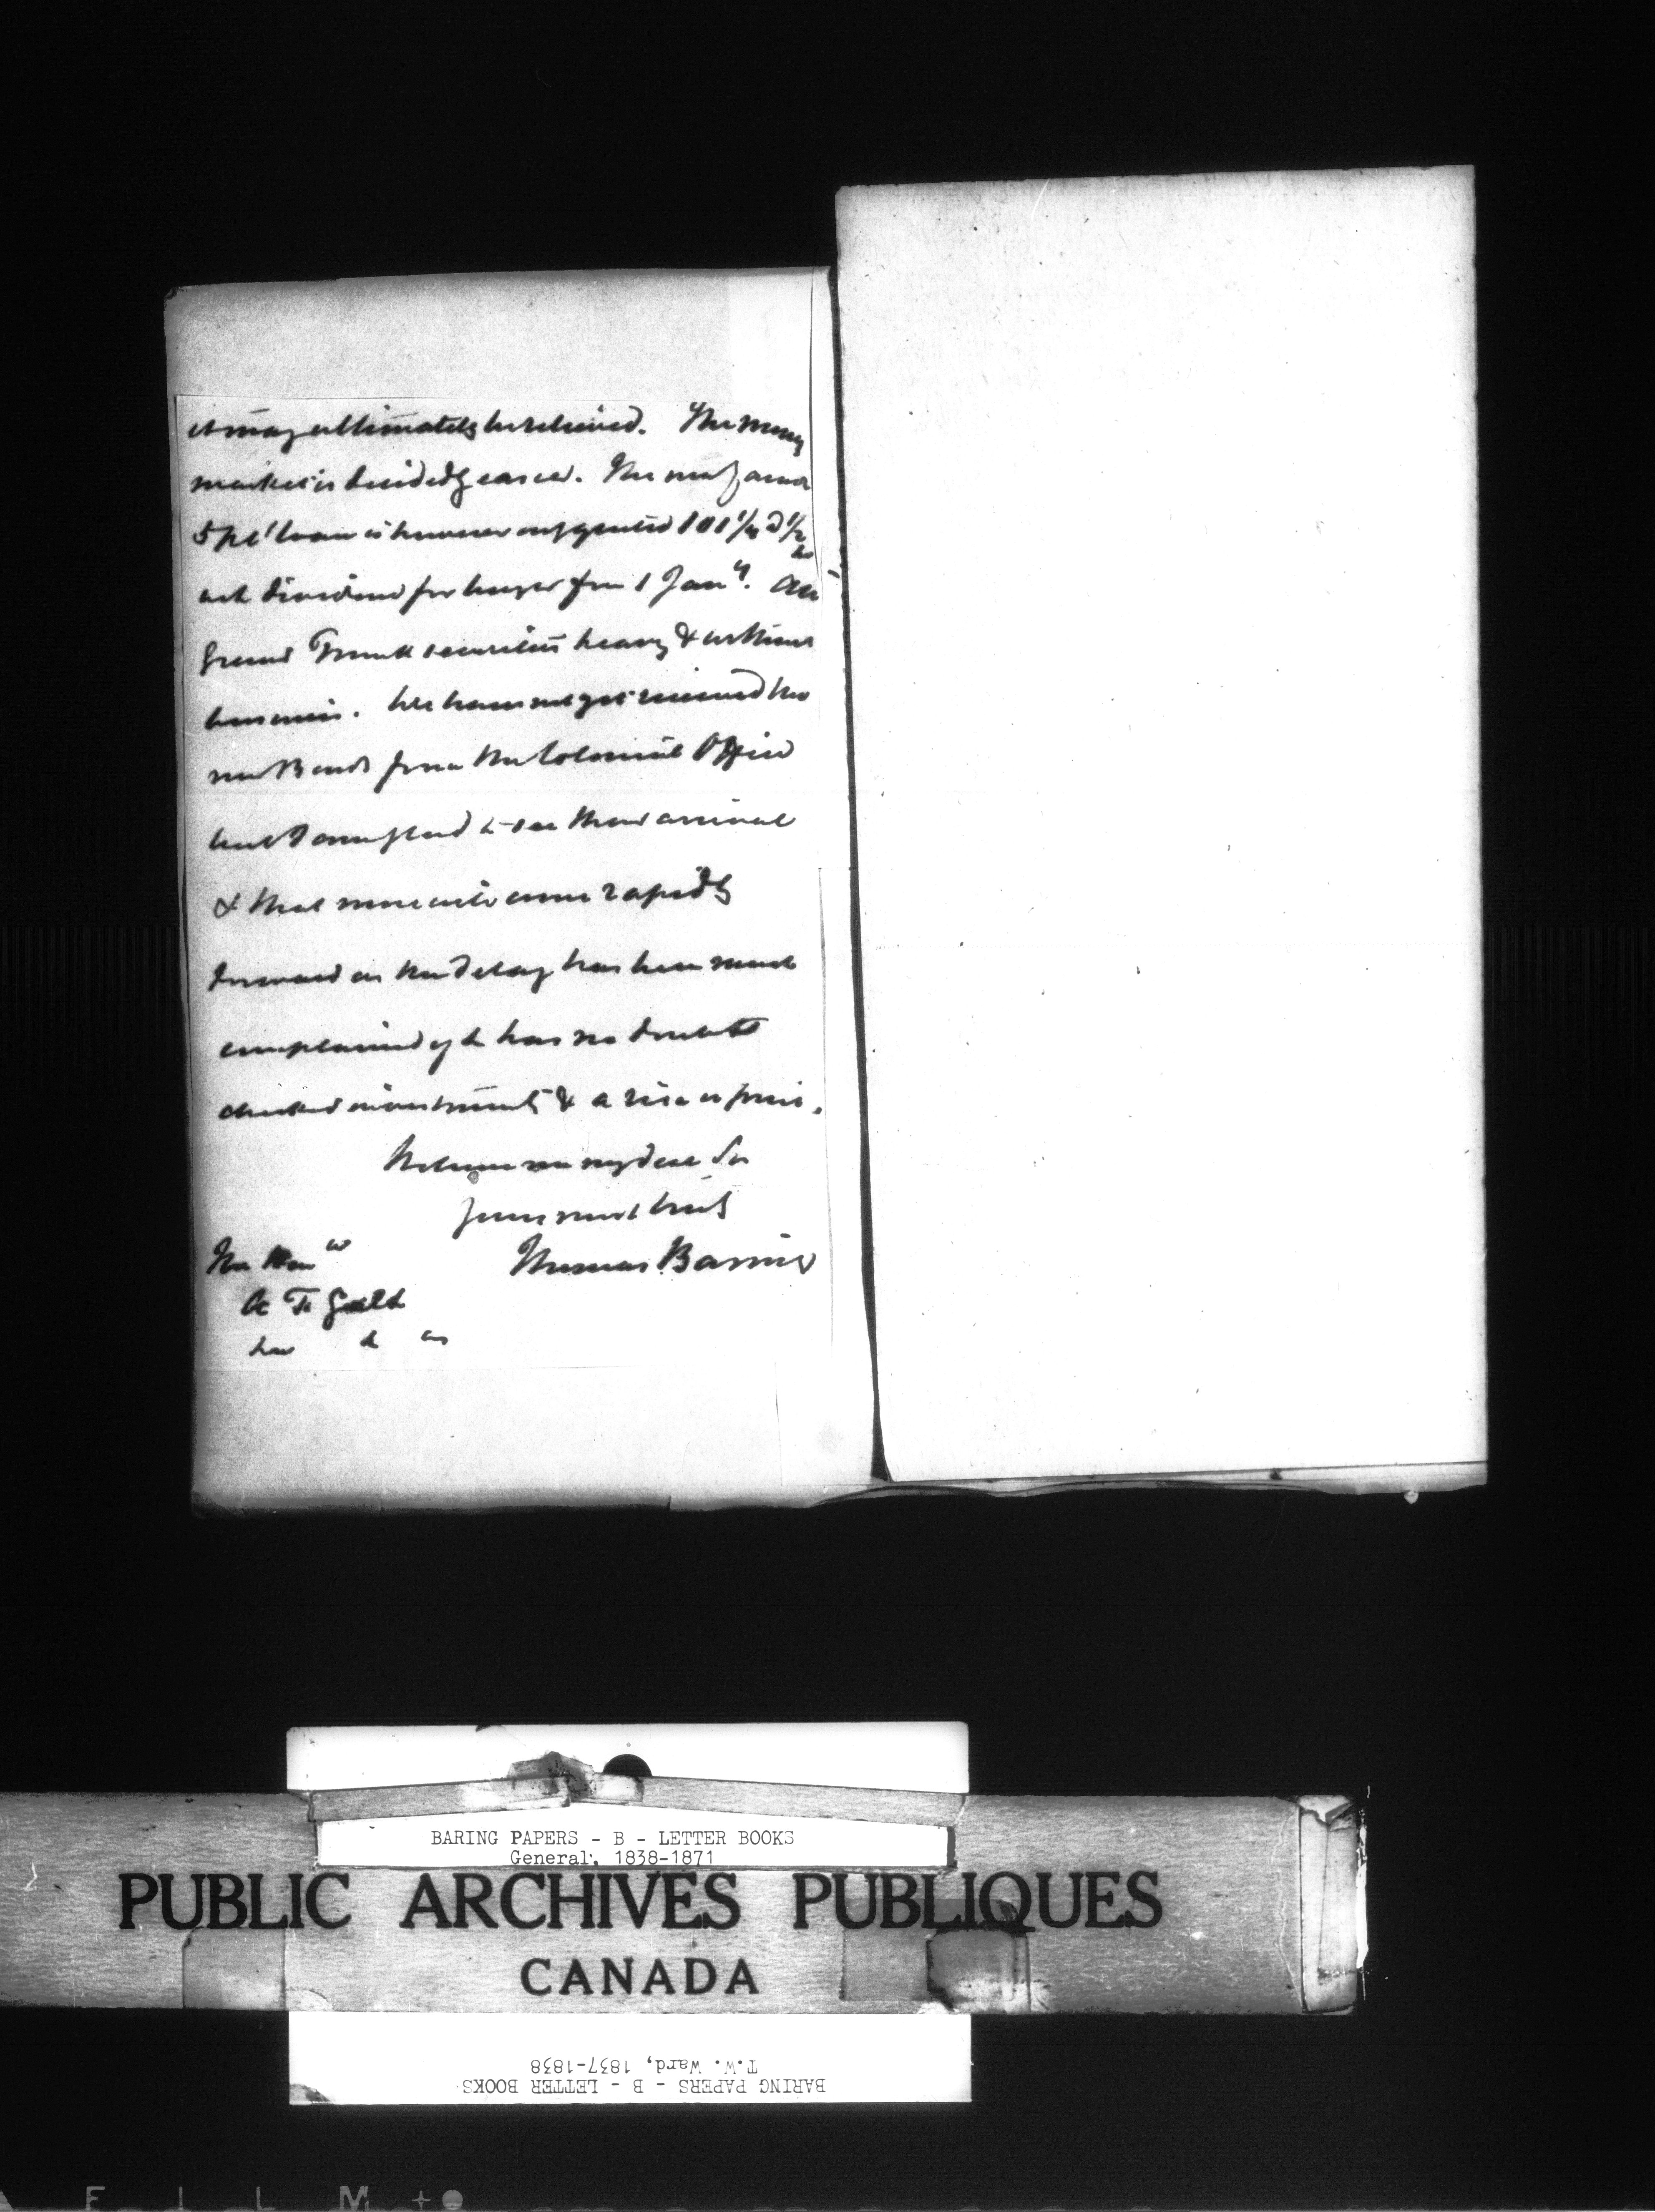 it may ultimately be relieved. The money
market is decidedly easier. The new Canada
5 pct loan is however only quoted 101 1/4 @ 1/2
dividend for from 1 Jany. All
Grand Trunk securities heavy & without
business. We have not yet received the
new Bonds from the Colonial Office
but I am glad to see their arrival
& that more will come rapidly
forward as the delay has been much
complained of & has no doubt
checked investments & a rise in price.
Believe me my dear Sir
Yours most truly
Thomas Baring
The Honble
A T Galt
BARING PAPERS - B - LETTER BOOKS
General, 1838-1871
PUBLIC ARCHIVES PUBLIQUES
CANADA
BARING PAPERS - B - LETTER BOOKS
T.W. Ward, 1837-1838